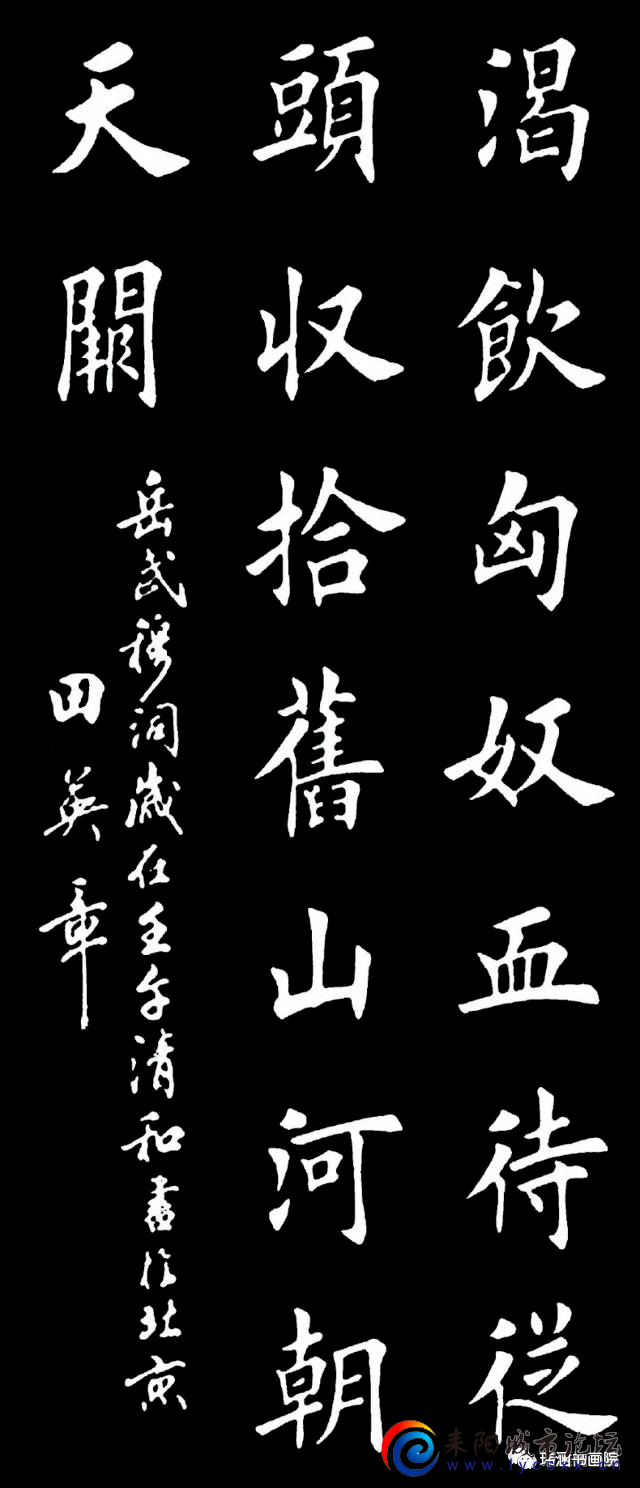 渴飲匈奴血待從
頭収拾舊山河朝
天闕
岳武穆詞歲在壬午清和書於北京
田英章
耒阳城市论坛